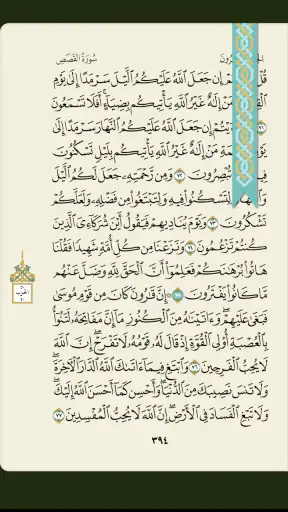 سُورَةُ القَصَصِ
قُلْ إِن جَعَلَ ٱللَّهُ عَلَيْكُمُ ٱلَّيْلَ سَرْمَدًا إِلَىٰ يَوْمِ
مَنْ إِلَٰهٌ غَيْرُ ٱللَّهِ يَأْتِيكُم بِضِيَآءٍ ۖ أَفَلَا تَسْمَعُونَ
٧١ إِن جَعَلَ ٱللَّهُ عَلَيْكُمُ ٱلنَّهَارَ سَرْمَدًا إِلَىٰ
مَنْ إِلَٰهٌ غَيْرُ ٱللَّهِ يَأْتِيكُم بِلَيْلٍ تَسْكُنُونَ
تُبْصِرُونَ ٧٢ وَمِن رَّحْمَتِهِۦ جَعَلَ لَكُمُ ٱلَّيْلَ
لِتَسْكُنُوا۟ فِيهِ وَلِتَبْتَغُوا۟ مِن فَضْلِهِۦ وَلَعَلَّكُمْ
تَشْكُرُونَ ٧٣ وَيَوْمَ يُنَادِيهِمْ فَيَقُولُ أَيْنَ شُرَكَآءِىَ ٱلَّذِينَ
كُنتُمْ تَزْعُمُونَ ٧٤ وَنَزَعْنَا مِن كُلِّ أُمَّةٍ شَهِيدًا فَقُلْنَا
هَاتُوا۟ بُرْهَٰنَكُمْ فَعَلِمُوٓا۟ أَنَّ ٱلْحَقَّ لِلَّهِ وَضَلَّ عَنْهُم
مَّا كَانُوا۟ يَفْتَرُونَ ٧٥ ۞ إِنَّ قَٰرُونَ كَانَ مِن قَوْمِ مُوسَىٰ
فَبَغَىٰ عَلَيْهِمْ ۖ وَءَاتَيْنَٰهُ مِنَ ٱلْكُنُوزِ مَآ إِنَّ مَفَاتِحَهُۥ لَتَنُوٓأُ
بِٱلْعُصْبَةِ أُو۟لِى ٱلْقُوَّةِ إِذْ قَالَ لَهُۥ قَوْمُهُۥ لَا تَفْرَحْ ۖ إِنَّ ٱللَّهَ
لَا يُحِبُّ ٱلْفَرِحِينَ ٧٦ وَٱبْتَغِ فِيمَآ ءَاتَىٰكَ ٱللَّهُ ٱلدَّارَ ٱلْءَاخِرَةَ ۖ
وَلَا تَنسَ نَصِيبَكَ مِنَ ٱلدُّنْيَا ۖ وَأَحْسِن كَمَآ أَحْسَنَ ٱللَّهُ إِلَيْكَ ۖ
وَلَا تَبْغِ ٱلْفَسَادَ فِى ٱلْأَرْضِ ۖ إِنَّ ٱللَّهَ لَا يُحِبُّ ٱلْمُفْسِدِينَ ٧٧
٣٩٤